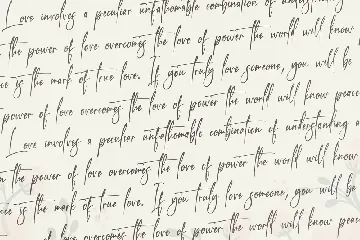 Love involves a peculiar unfathomable combination of understanding
the power of love overcomes the love of power the world will know
is the mark of true love. If you truly love someone, you will be
power of love overcomes the love of power the world will know peace
Love involves a peculiar unfathomable combination of understanding a
the power of love overcomes the love of power the world will know
is the mark of true love. If you truly love someone, you will be
of love overcomes the love of power the world will know